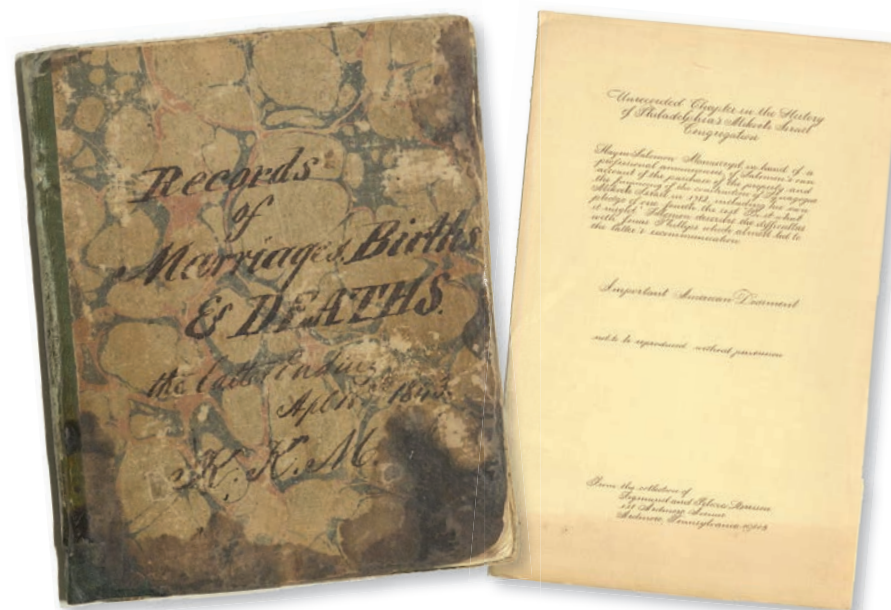 Records
of
Marriages, Births
& DEATHS.
the latt Ending
Apl 1843
K. K. M.
Unrecorded Chapter in the History
of Philadelphia's Mikveh Israel
Congregation
Haym Salomon Manuscript in hand of a
professional amanuensis, of Salomon's own
account of the purchase of the property and
the financing of the construction of Synagogue
Mikveh Israel in 1782, including his own
pledge of one fourth the cost "be it what
it might." Salomon describes the difficulties
with Jonas Phillips which almost led to
the latter's excommunication
Important American Document
not to be reproduced without permission
From the collection of
Sigmund and
Ardmore Avenue
Ardmore, Pennsylvania